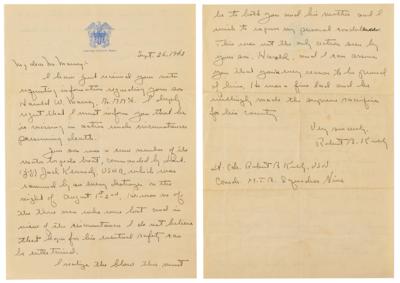 Sept. 26, 1943
My dear Mr. Marney:-
I have just received your note
requesting information regarding your son
Harold W. Marney, I deeply
regret that I must inform you that he
is missing in action under circumstances
presuming death.
Your son was a crew member of the
motor torpedo boat, commanded by Lieut.
(jg) Jack Kennedy, USNR, which was
rammed by an enemy destroyer on the
night of August 1st-2nd. He was one of
the three men who were lost and in
view of the circumstances I do not believe
that hope for his eventual safety can
be entertained.
I realize the blow this must
be to both you and his mother and I
wish to express my personal condolences.
This was not the only action seen by
your son, Harold, and I can assure
you that you have every reason to be proud
of him. He was a fine lad and he
unflinchingly made the supreme sacrifice
for his country.
Very sincerely,
Robert B. Kelly
Lt. Cdr. Robert B. Kelly, USN
Comdr. M.T.B. Squadron Nine